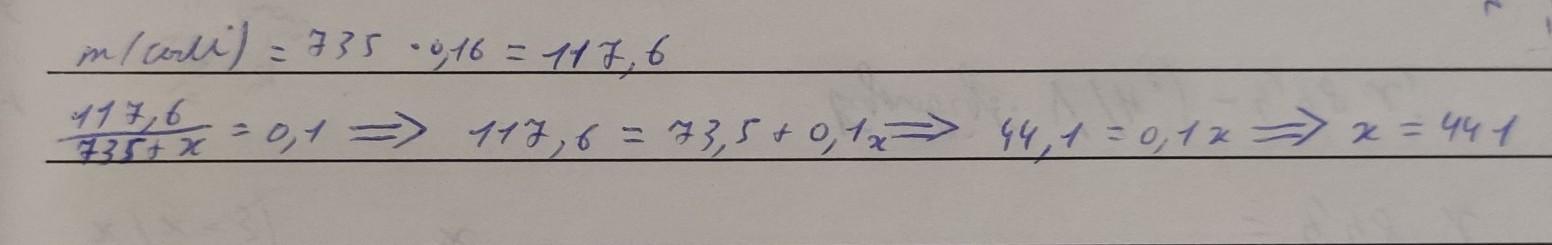 m(соли) = 735 · 0,16 = 117,6
117,6 / 735 + x = 0,1 ⟹ 117,6 = 73,5 + 0,1x ⟹ 44,1 = 0,1x ⟹ x = 441